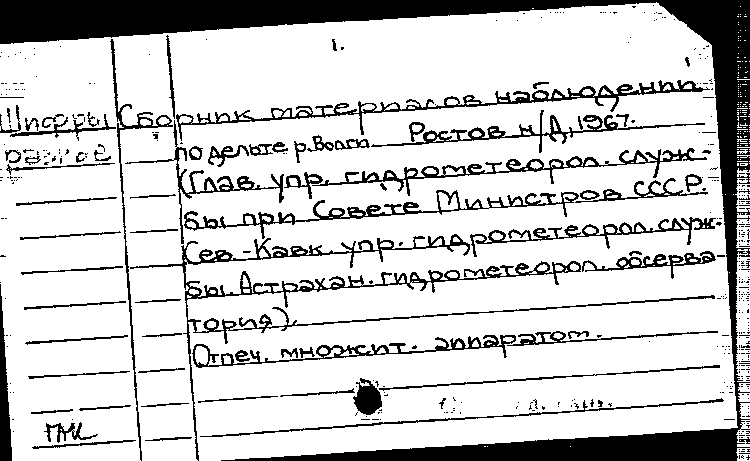 1.
Шифры Сборник материалов наблюдений
разные по дельте р. Волги. Ростов н/Д, 1967.
(Глав. упр. гидрометеорол. служ-
бы при Совете Министров СССР.
Сев.-Кавк. упр. гидрометеорол. служ-
бы. Астрахан. гидрометеорол. обсерва-
тория).
Отпеч. множит. аппаратом.